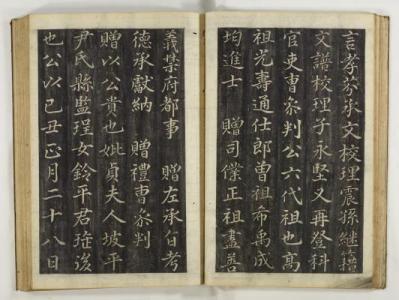 言孝芬承文校理震孫継籍
文譜校理子永堅又再登科
官吏曹参判公六代祖也高
祖光壽通仕郎曽祖布禹成
均進士　贈司僕正祖盡善
義禁府都事　贈左承旨考
德承獻納　贈禮曹参判
贈以公貴也妣貞夫人坡平
尹氏縣監珵女鈴平君㻐後
也公以己丑正月二十八日